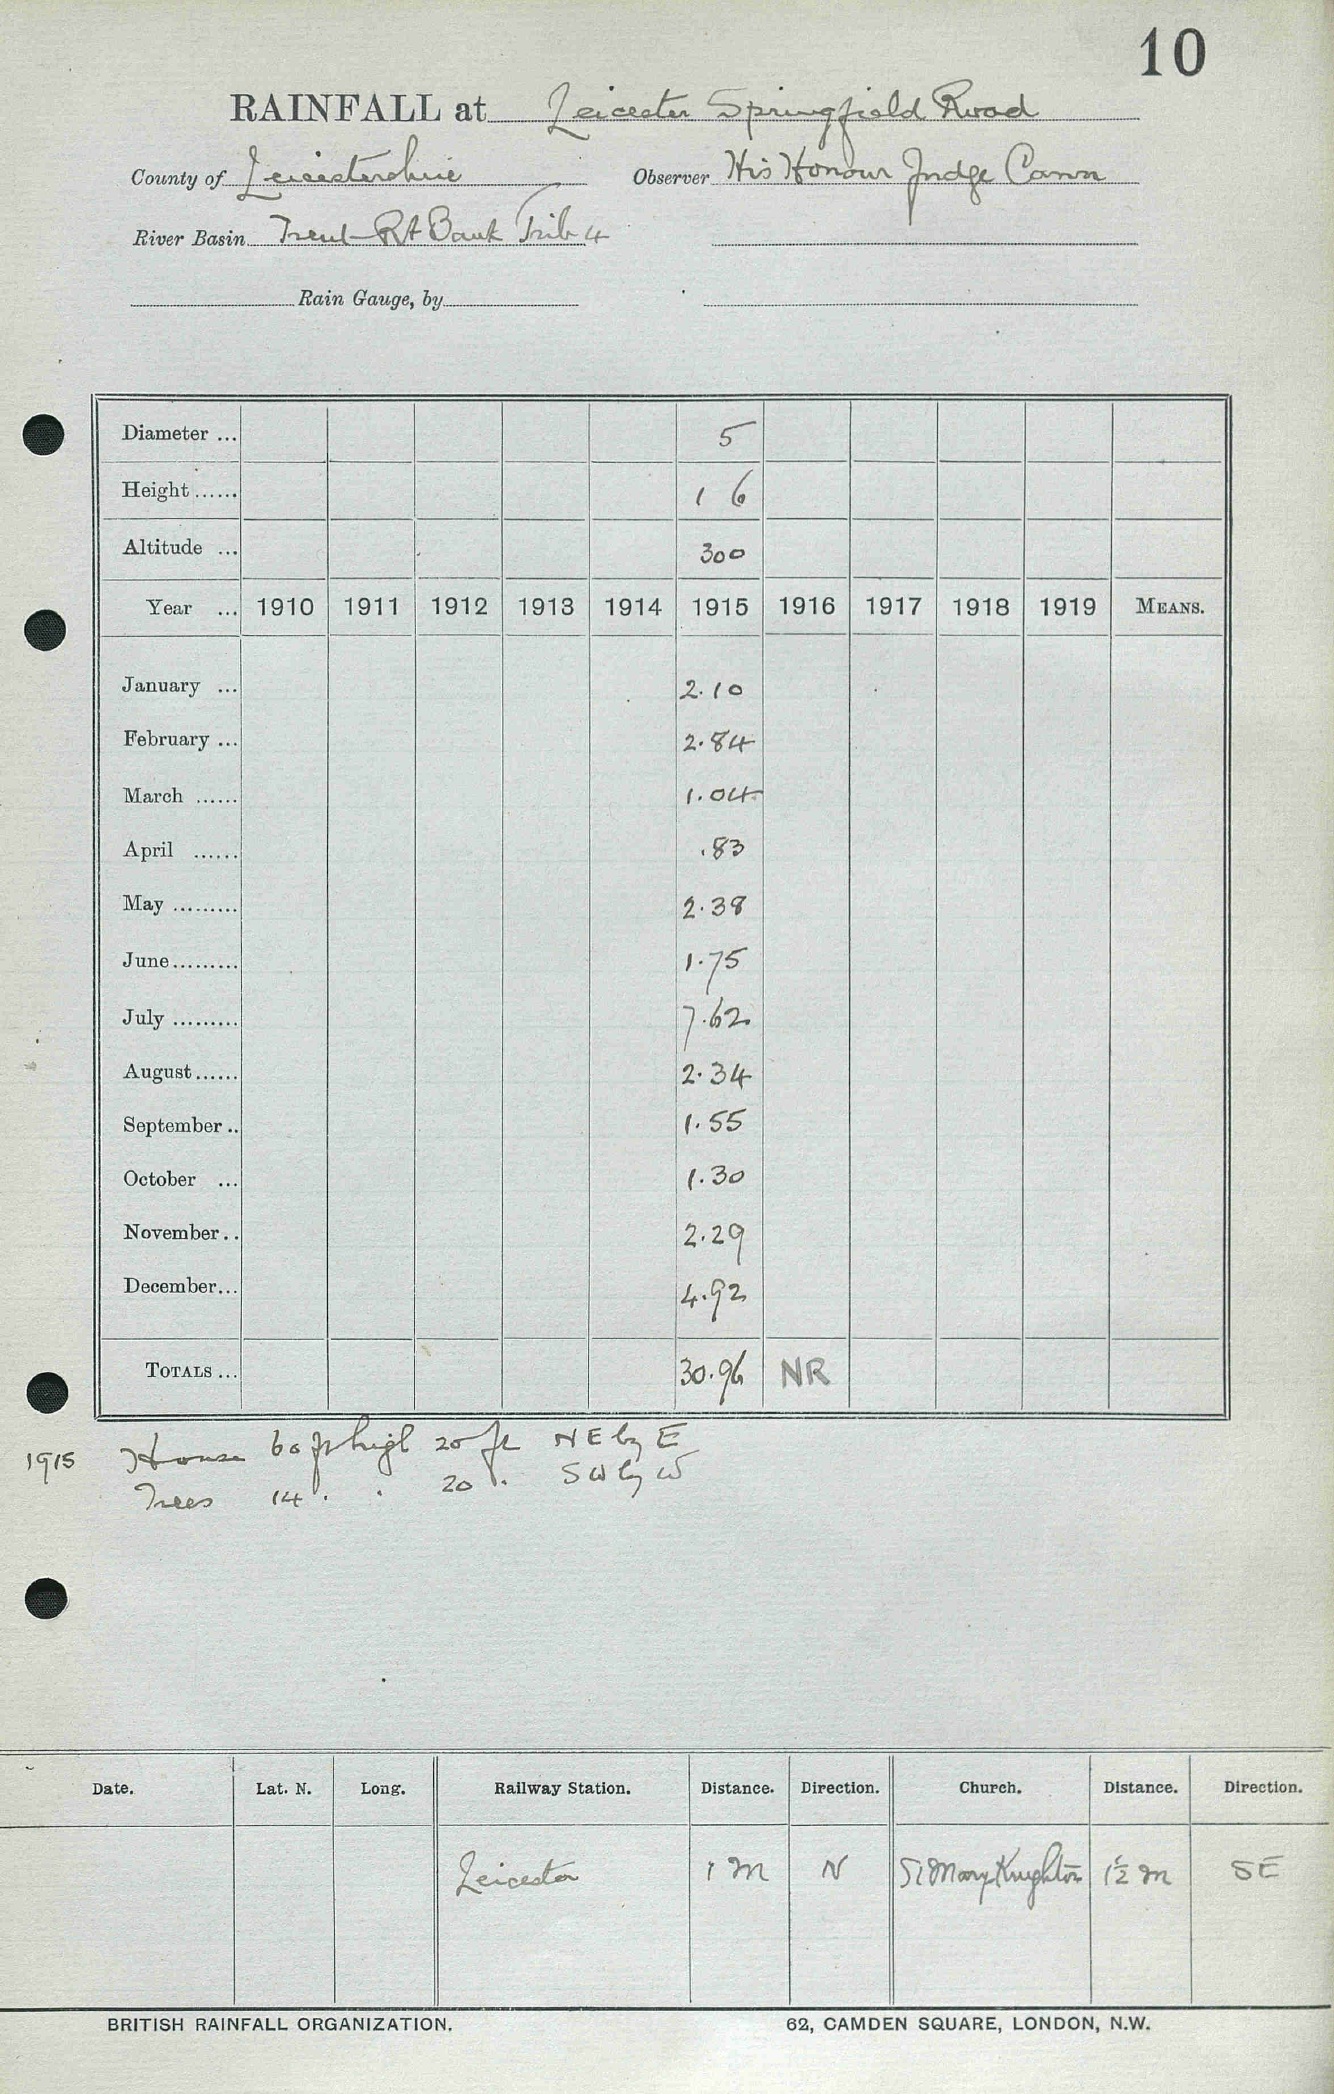 10
RAINFALL at Leicester Springfield Road
County of Leicestershire Observer His Honour Judge Cann
River Basin Trent Rt Bank Trib 4
Rain Gauge, by
Diameter ... 5
Height ...... 1 6
Altitude ... 300
Year ... 1910 1911 1912 1913 1914 1915 1916 1917 1918 1919 MEANS.
January ... 2.10
February ... 2.84
March ...... 1.04
April ...... .83
May ......... 2.38
June ......... 1.75
July ......... 7.62
August ...... 2.34
September .. 1.55
October ... 1.30
November .. 2.29
December ... 4.92
TOTALS ... 30.96 NR
1915 House 60 ft high 20 ft NE by E
Trees 14 . . 20 . SW by W
Date. Lat. N. Long. Railway Station. Distance. Direction. Church. Distance. Direction.
Leicester 1 m N St Mary Knighton 1½ m SE
BRITISH RAINFALL ORGANIZATION. 62, CAMDEN SQUARE, LONDON, N.W.